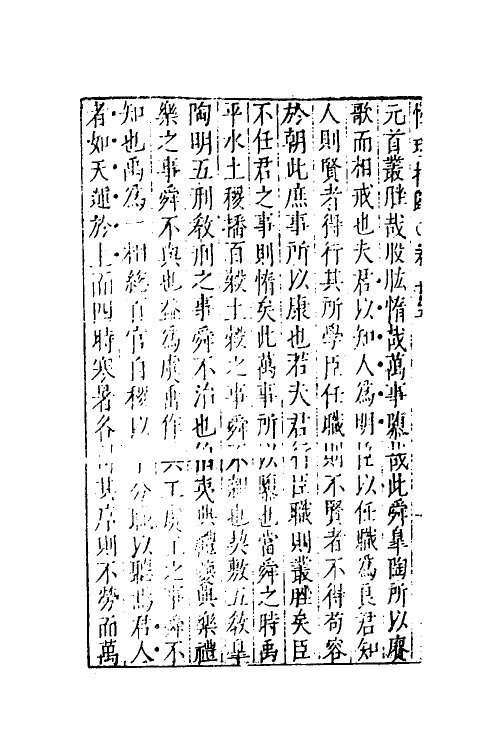 元首叢脞哉股肱惰哉萬事隳哉此舜臯陶所以賡
歌而相戒也夫君以知人爲明臣以任職爲良君知
人則賢者得行其所學臣任職則不賢者不得苟容
於朝此庶事所以康也若夫君行臣職則叢脞矣臣
不任君之事則惰矣此萬事所以隳也當舜之時禹
平水土稷播百穀土穀之事舜不親也契敷五敎臯
陶明五刑敎刑之事舜不治也伯夷典禮夔典樂禮
樂之事舜不與也益爲虞垂作共工虞工之事舜不
知也禹爲一相總百官自稷以下分職以聽焉君人
者如天運於上而四時寒暑各得其序則不勞而萬